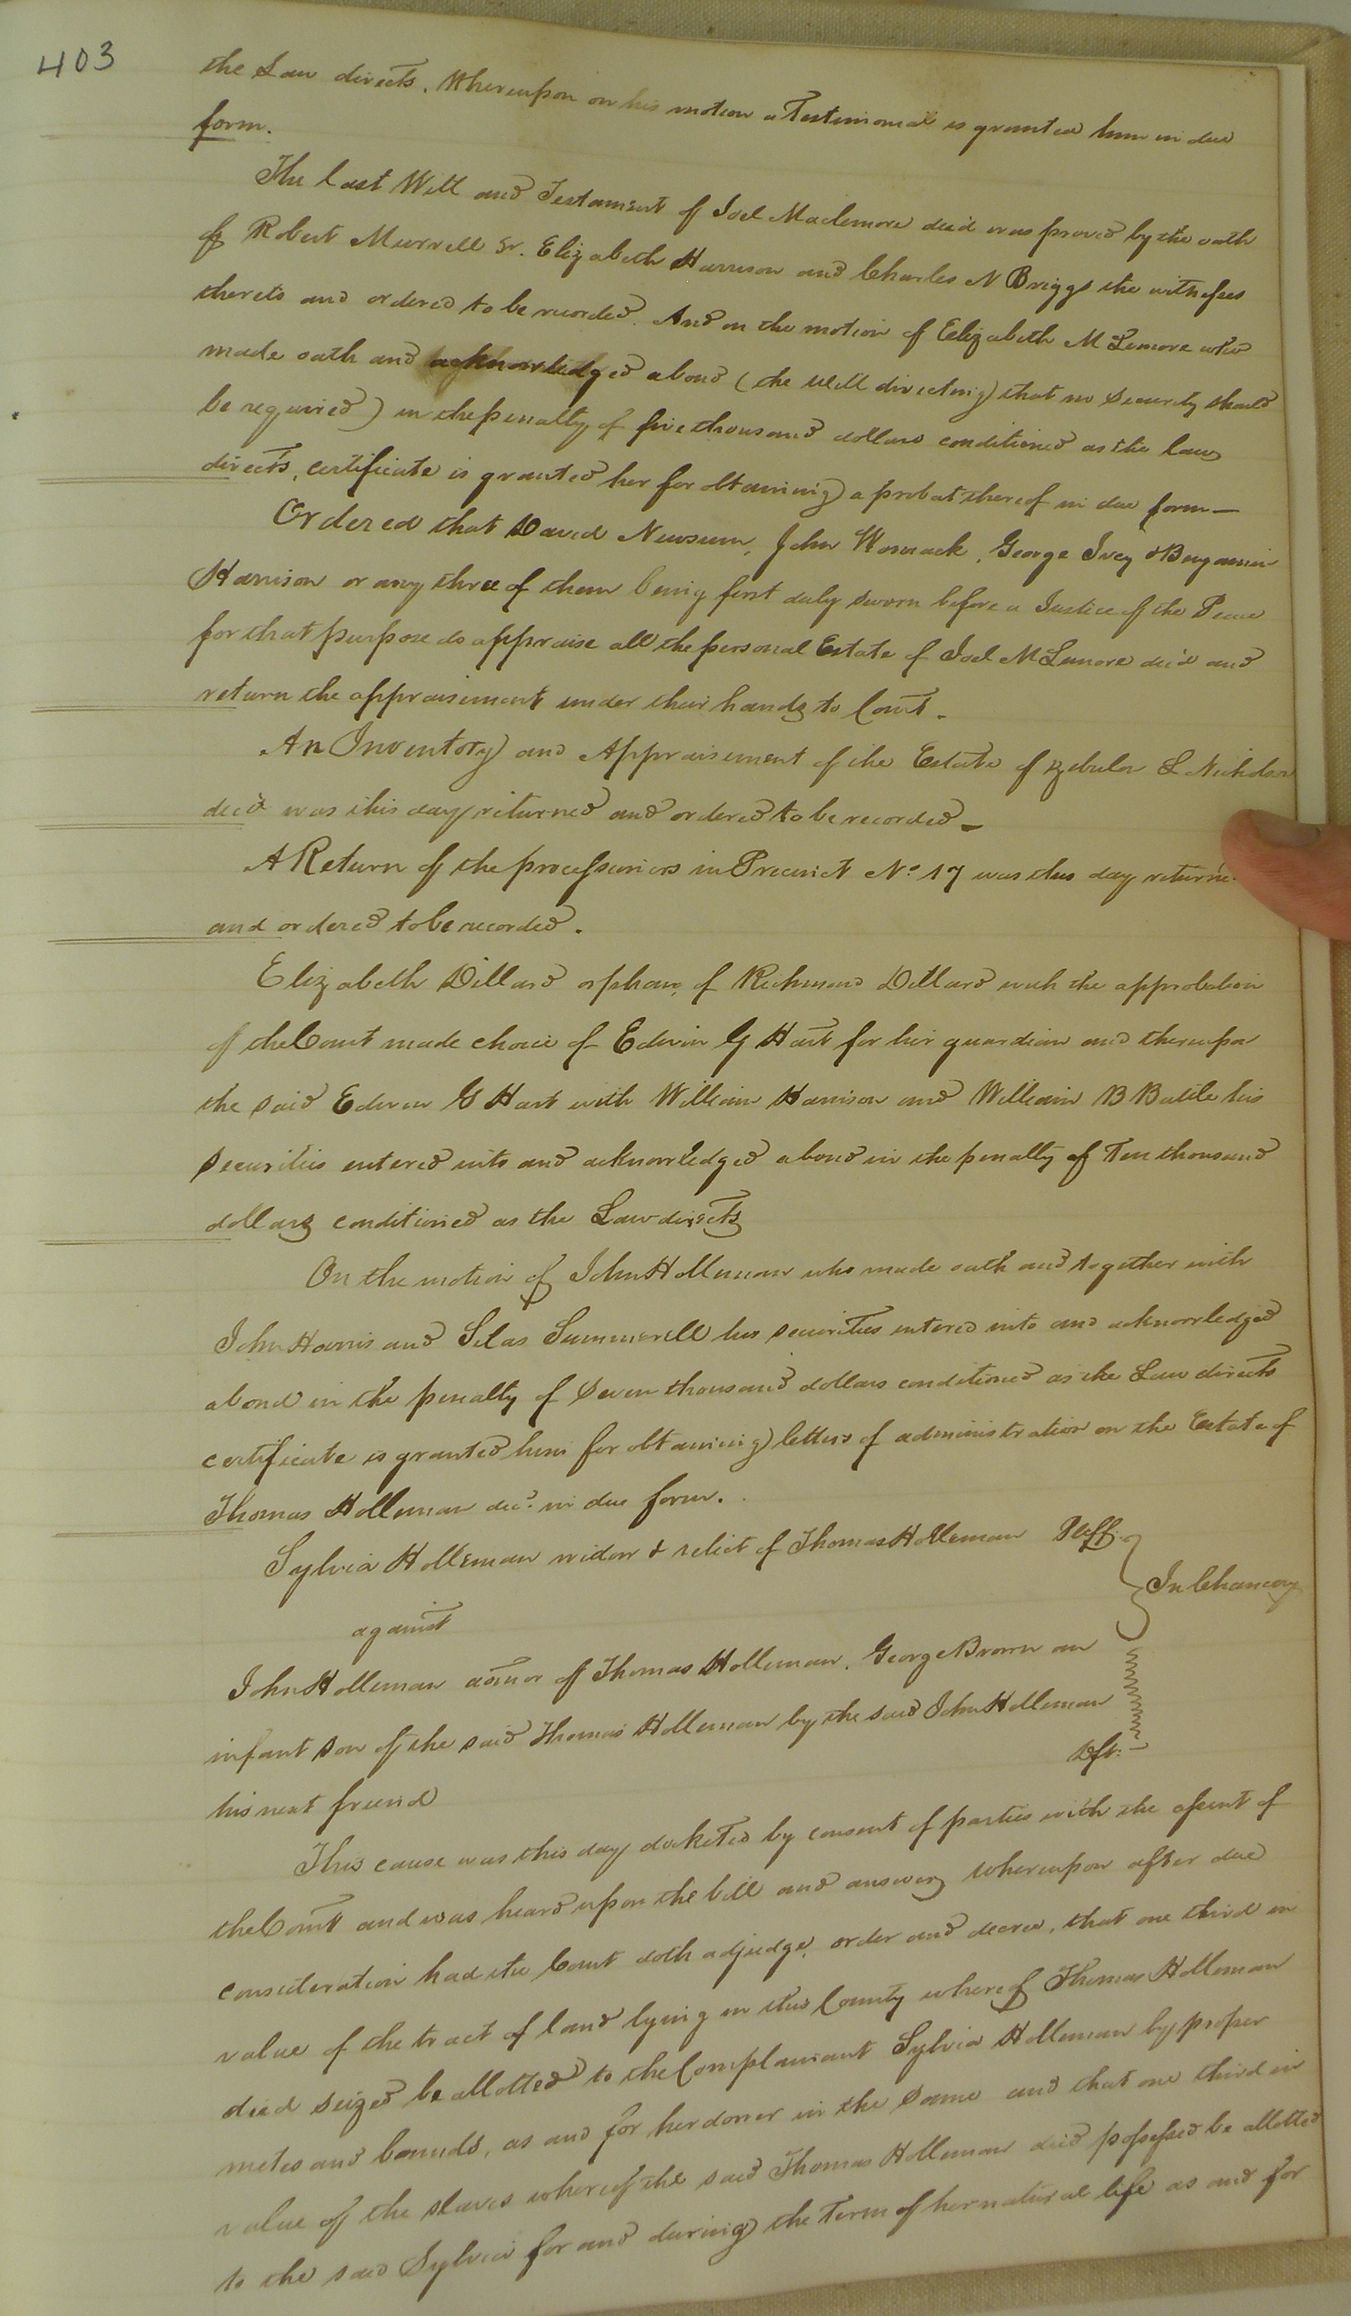 403
the Law directs. Whereupon on his motion a Testimonial is granted him in due
form.
The last Will and Testament of Joel Maclemore decd was proved by the oath
of Robert Murrell Sr. Elizabeth Harrison and Charles N Briggs the witnesses
thereto and ordered to be recorded. And on the motion of Elizabeth M Lemore who
made oath and acknowledged a bond (the Will directing that no Security should
be required) in the penalty of five thousand dollars conditioned as the law
directs, certificate is granted her for obtaining a probat thereof in due form—
Ordered that David Newsum, John Womack, George Ivey & Benjamin
Harrison or any three of them being first duly sworn before a Justice of the Peace
for that purpose do appraise all the personal Estate of Joel M Lemore decd and
return the appraisement under their hands to Court.
An Inventory and Appraisement of the Estate of Zebulon L Nicholson
decd was this day returned and ordered to be recorded—
A Return of the processioners in Precinct No. 17 was this day returne
and ordered to be recorded.
Elizabeth Dillard orphan of Richmond Dillard with the approbation
of the Court made choice of Edwin G Hart for her guardian and thereupon
the said Edwin G Hart with William Harrison and William B Battle his
securities entered into and acknowledged a bond in the penalty of Ten thousand
dollars conditioned as the Law directs
On the motion of John Holleman who made oath and together with
John Harris and Silas Summerell his securities entered into and acknowledged
a bond in the penalty of Seven thousand dollars conditioned as the Law directs
certificate is granted him for obtaining letters of administration on the Estate of
Thomas Holleman decd. in due form.
Sylvia Holleman widow & relict of Thomas Holleman Plff.
In Chancery
against
John Holleman admor of Thomas Holleman, George Brown an
infant son of the said Thomas Holleman by the said John Holleman
Dft.
his next friend
This cause was this day docketed by consent of parties with the assent of
the Court and was heard upon the bill and answers whereupon after due
consideration had the Court doth adjudge, order and decree, that one third in
value of the tract of land lying in this County whereof Thomas Holleman
died seized be allotted to the Complainant Sylvia Holleman by proper
metes and bounds, as and for her dower in the same and that one third in
value of the slaves whereof the said Thomas Holleman died possessed be allotted
to the said Sylvia for and during the term of her natural life as and for